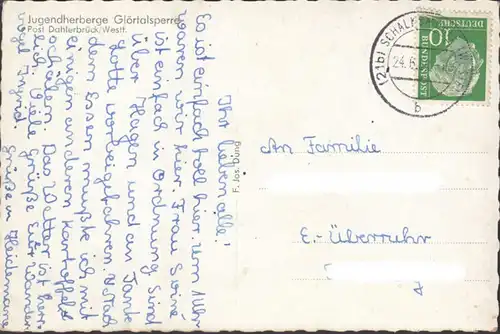 Jugendherberge Glörtalsperre
Post Dahlerbrück/Westf.
Ihr lieben alle!
Es ist einfach toll hier. Um 11 Uhr
waren wir hier. Frau Swine
ist einfach in Ordnung. Sind
über Hagen und an Tante
Lotte vorbeigefahren. Nach
dem Essen mußte ich mit
einigen anderen Kartoffeln
schälen. Das Wetter ist herr-
lich. Viele Grüße Euer Wander-
vogel Ingrid.
Grüße v. Heidemarie
F. Jos. Dung
(21b) SCHALKS
24.6.
b
DEUTSCHE
BUNDESPOST
10
An Familie
E.-Überruhr